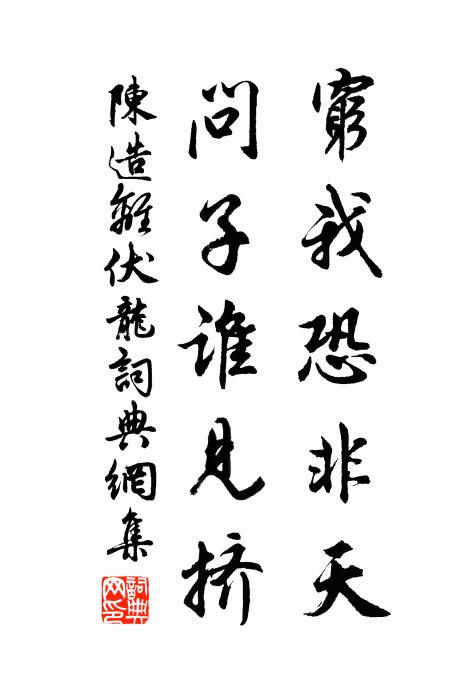 窮我恐非天
問子誰見挤
陳造離伏龍詞典網集
詞典
网印